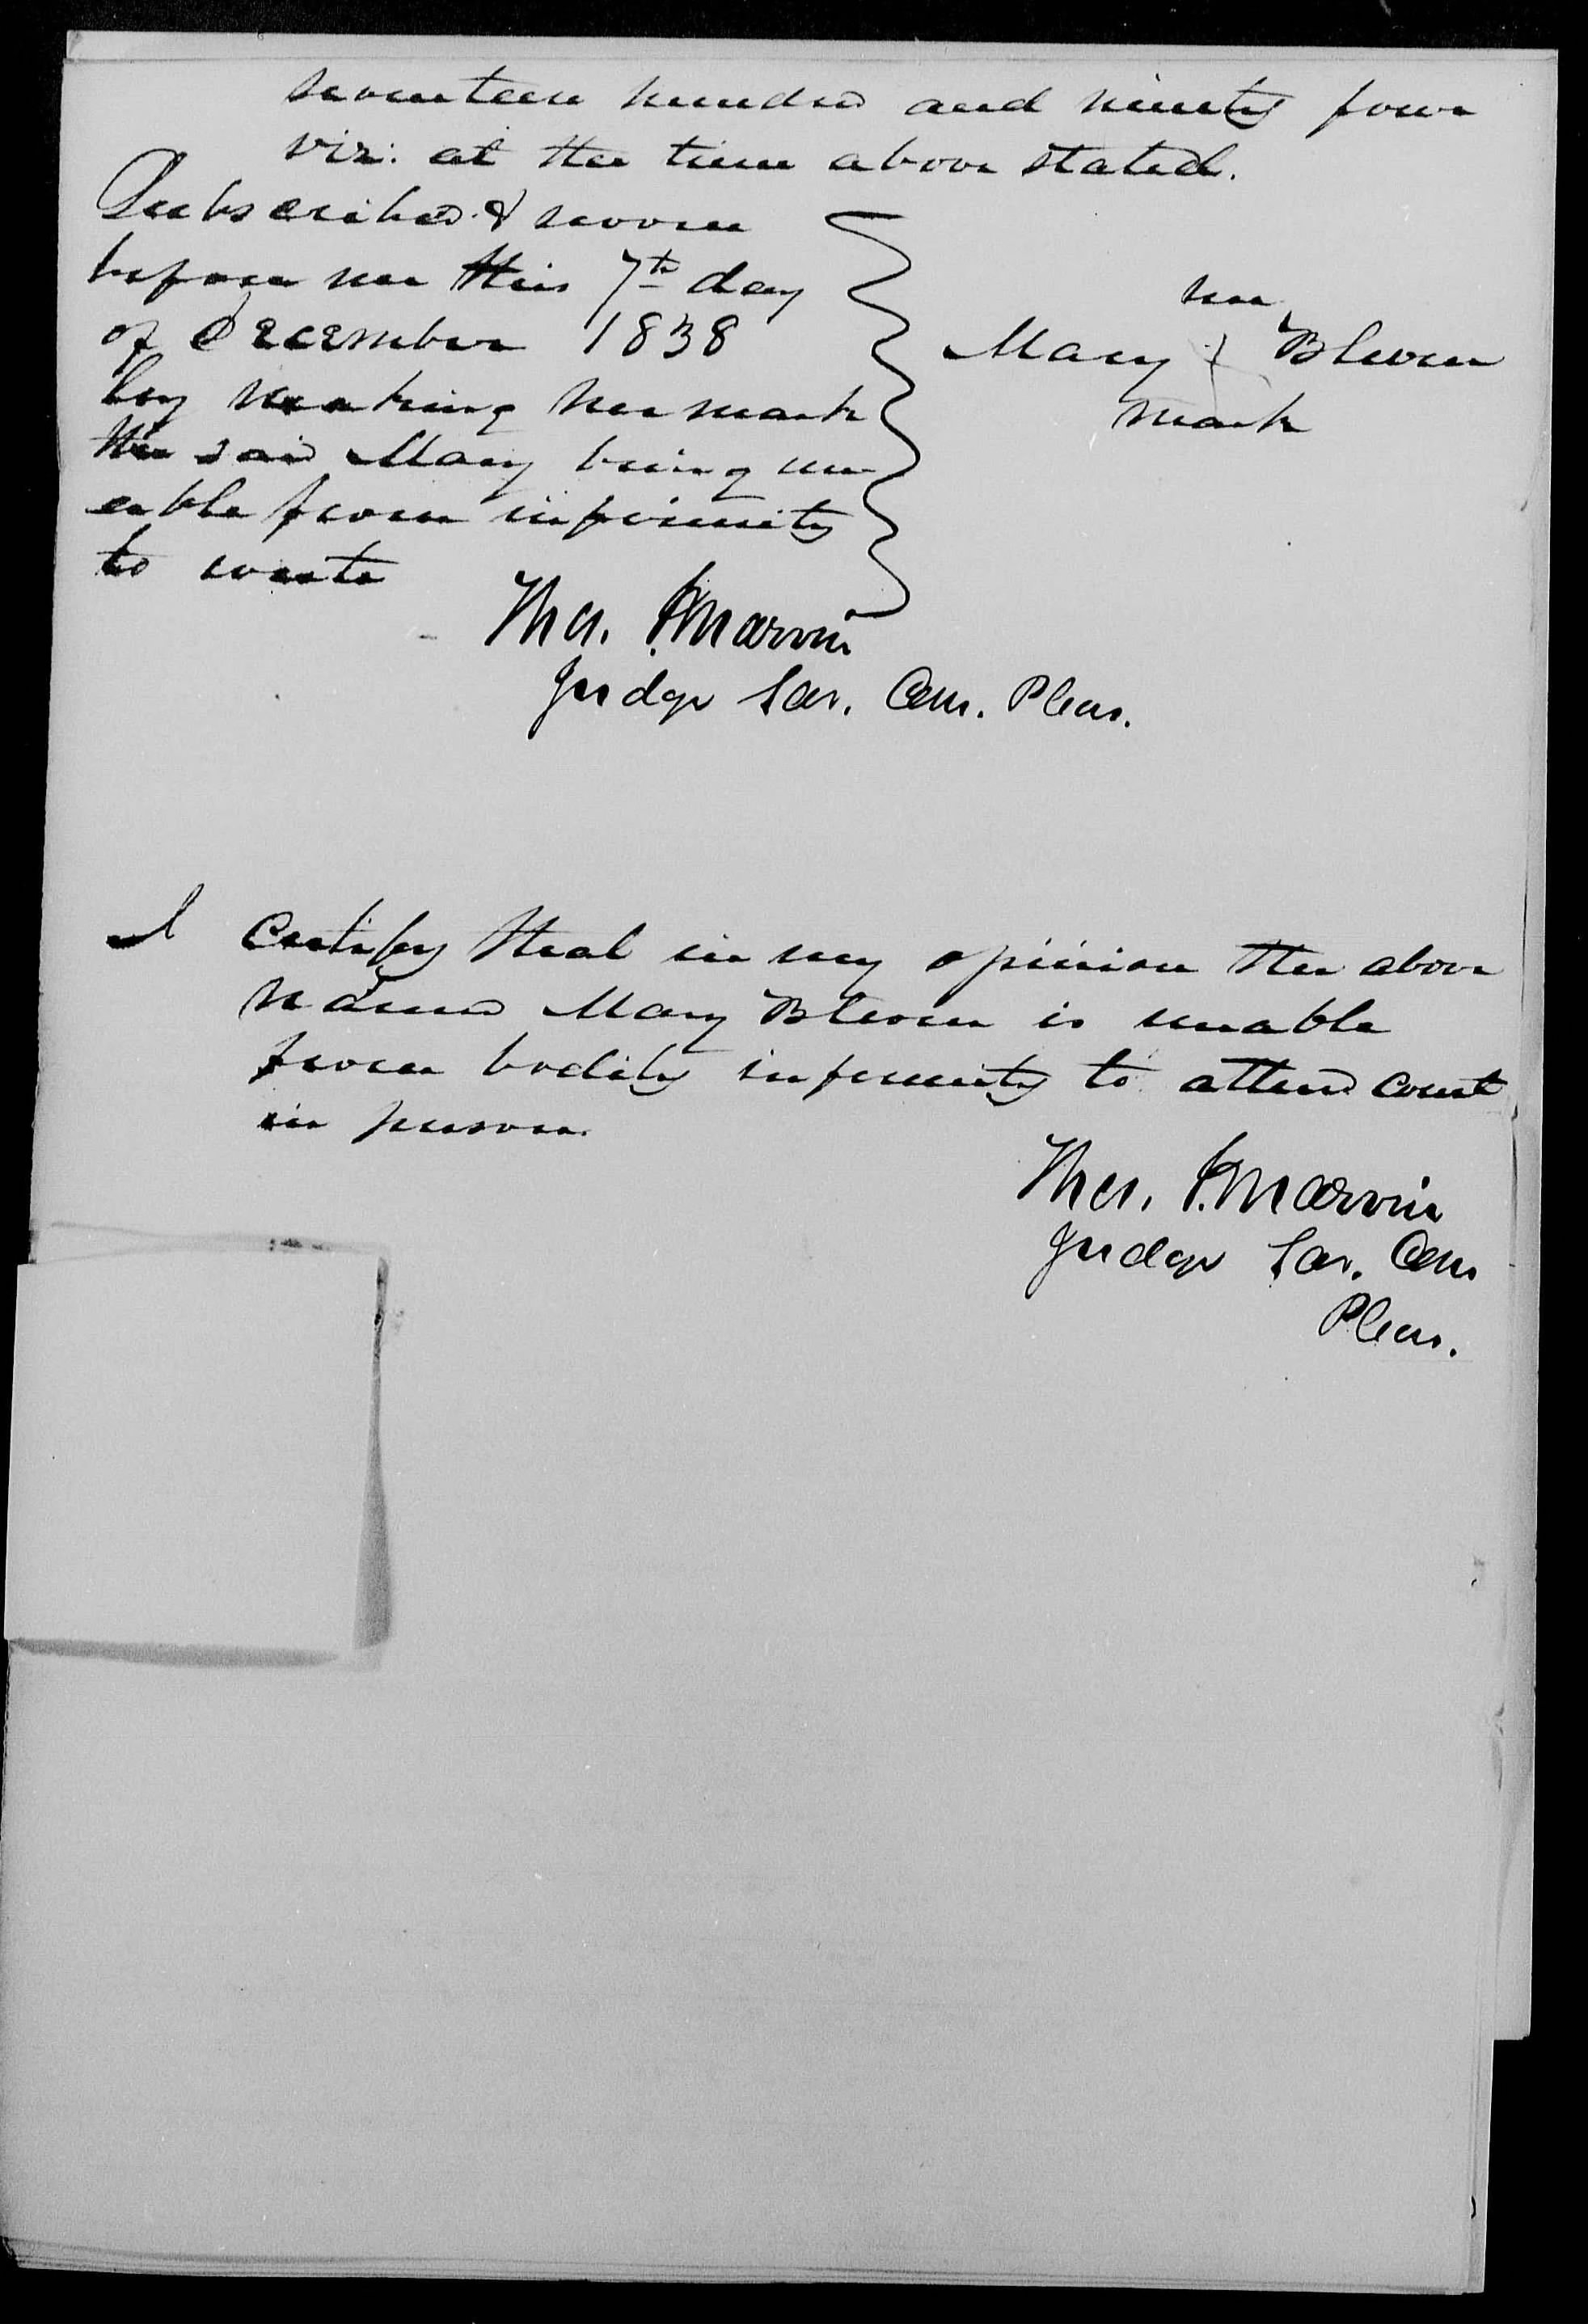 seventeen hundred and ninety four
viz: at the time above stated.
Subscribed & sworn
before me this 7th day
of December 1838
by making her mark
the said Mary being un-
able from infirmity
to write
her
Mary x Bleven
mark
Thos. J. Marvin
Judge Sar. Com. Pleas.
I certify that in my opinion the above
named Mary Bleven is unable
from bodily infirmity to attend court
in person.
Thos. J. Marvin
Judge Sar. Com
Pleas.